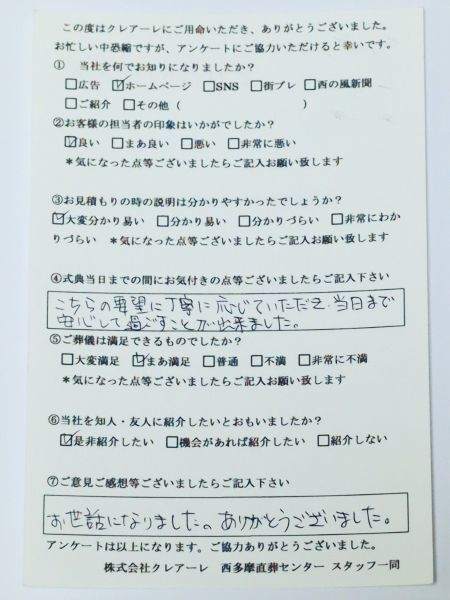 この度はクレアーレにご用命いただき、ありがとうございました。
お忙しい中恐縮ですが、アンケートにご協力いただけると幸いです。
① 当社を何でお知りになりましたか?
□広告 ☑ホームページ □SNS □街プレ □西の風新聞
□ご紹介 □その他( )
②お客様の担当者の印象はいかがでしたか?
☑良い □まあ良い □悪い □非常に悪い
*気になった点等ございましたらご記入お願い致します
③お見積もりの時の説明は分かりやすかったでしょうか?
☑大変分かり易い □分かり易い □分かりづらい □非常にわか
りづらい *気になった点等ございましたらご記入お願い致します
④式典当日までの間にお気付きの点等ございましたらご記入下さい
こちらの要望に丁寧に応じていただき、当日まで
安心して過ごすことが出来ました。
⑤ご葬儀は満足できるものでしたか?
□大変満足 ☑まあ満足 □普通 □不満 □非常に不満
*気になった点等ございましたらご記入お願い致します
⑥当社を知人・友人に紹介したいとおもいましたか?
☑是非紹介したい □機会があれば紹介したい □紹介しない
⑦ご意見ご感想等ございましたらご記入下さい
お世話になりました。ありがとうございました。
アンケートは以上になります。ご協力ありがとうございました。
株式会社クレアーレ 西多摩直葬センター スタッフ一同